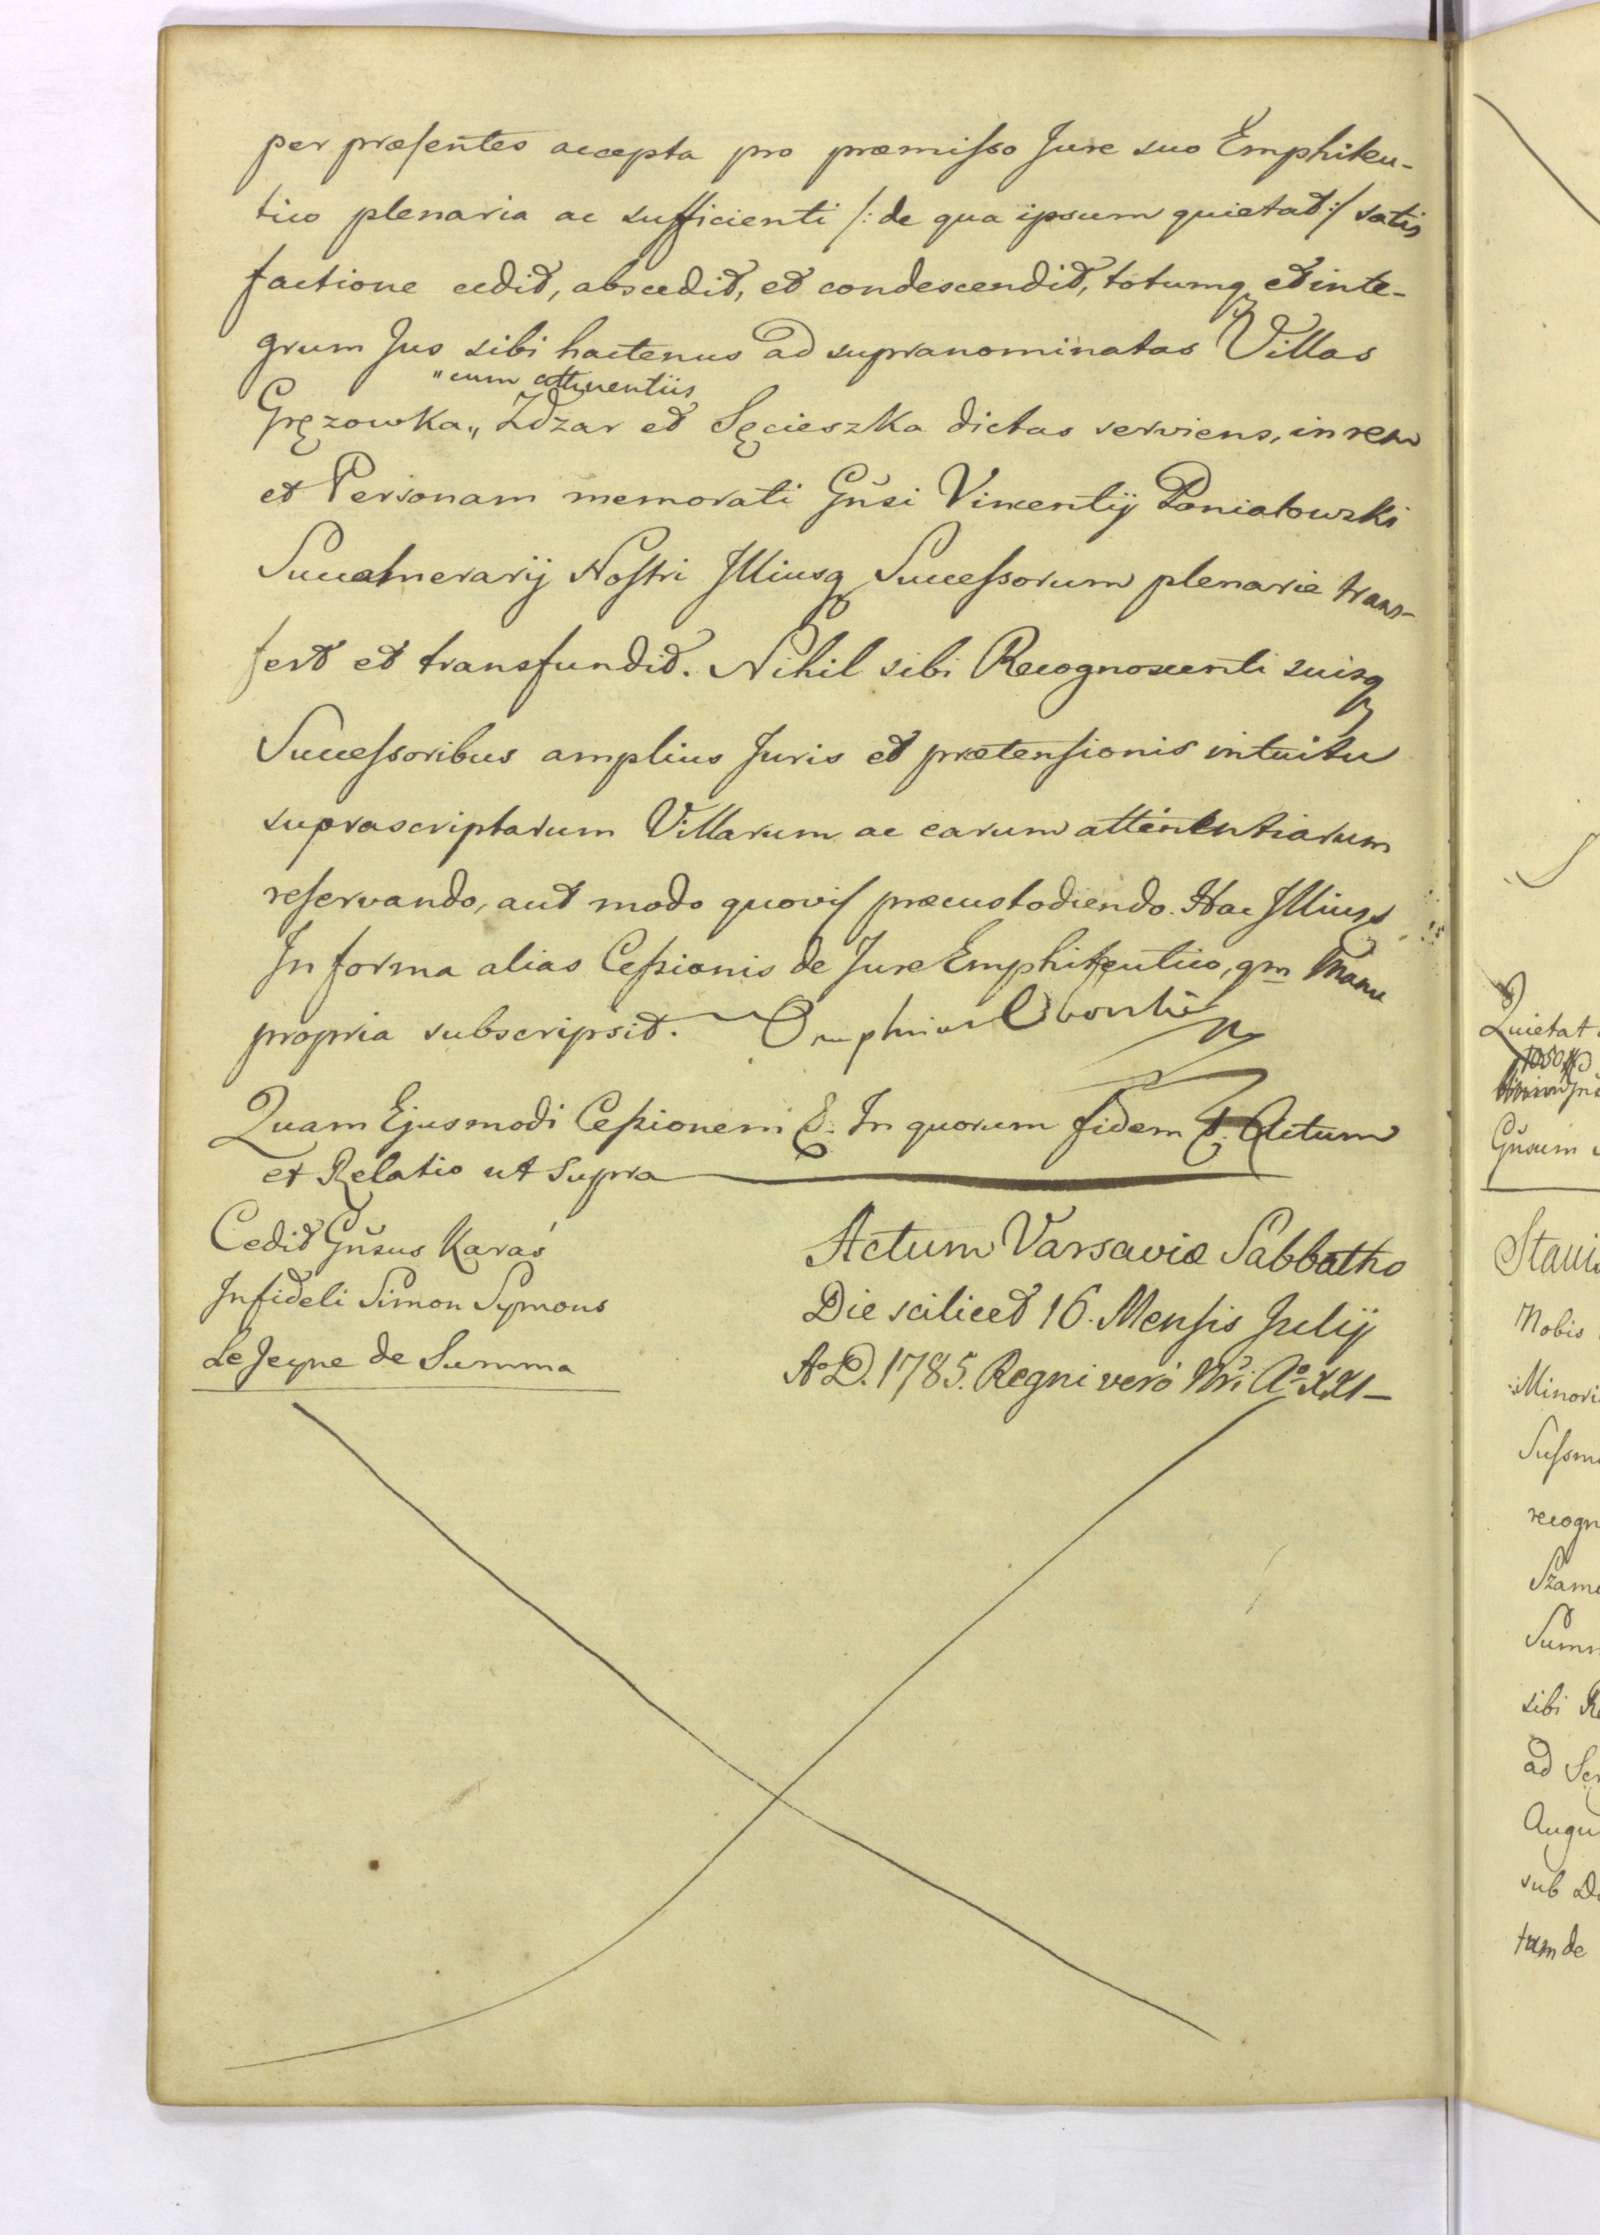 per præsentes accepta pro præmisso Jure suo Emphiteu-
tico plenaria ac sufficienti /: de qua ipsum quietat :/ satis
factione cedit, abscedit, et condescendit, totumq et inte-
grum Jus sibi hactenus ad supranominatas Villas
"cum attinentiis
Gręzowka „ Zdzar et Sęcieszka dictas serviens, in rem
et Personam memorati Gñsi Vincentij Poniatowski
Succamerarij Nostri Illiusq Successorum plenarie trans-
fert et transfundit. Nihil sibi Recognoscenti suisq
Successoribus amplius Juris et prætensionis intuitu
suprascriptarum Villarum ac earum attinentiarum
reservando, aut modo quovis præcustodiendo. Hac Illius
In forma alias Cessionis de Jure Emphiteutico, qm Manu
propria subscripsit.
Quam Ejusmodi Cessionem &. In quorum fidem &. Actum
et Relatio ut supra
Cedit Gñsus Karaś
Infideli Simon Symons
Le Jeyne de Summa
Actum Varsaviæ Sabbatho
Die scilicet 16. Mensis Julij
Ao D. 1785. Regni vero Nri Ao XXI
Quietat
1050
Gñsum
Stani
Nobis
Minori
Sussm
recogn
Szam
Summ
sibi Re
ad Ser
Augu
sub D
tam de